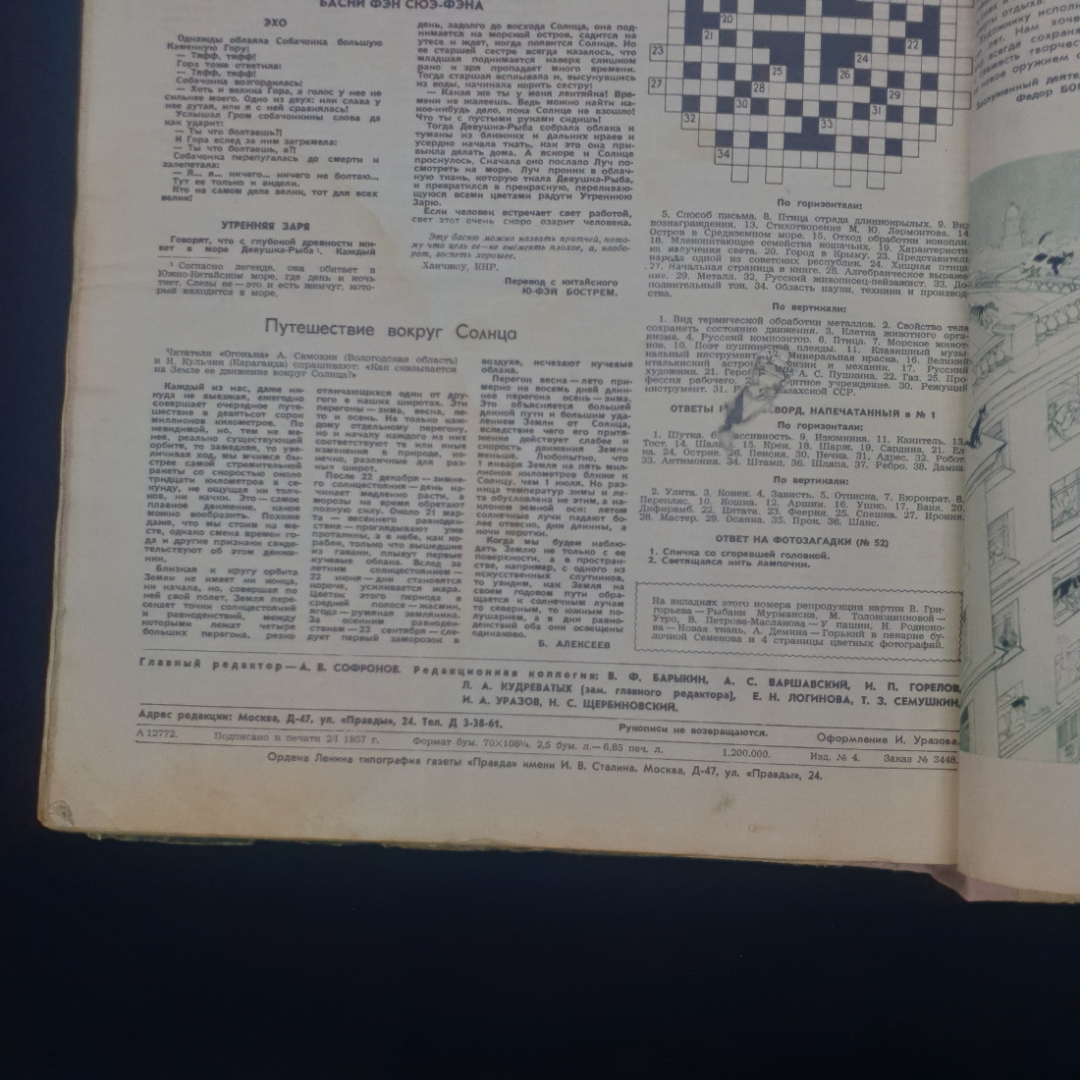 БАСНИ ФЭН СЮЭ-ФЭНА
ЭХО
Однажды облаяла Собачонка большую
Каменную Гору:
— Тяфф, тяфф!
Гора тоже ответила:
— Тяфф, тяфф!
Собачонка возгордилась:
— Хоть и велика Гора, а голос у нее не
сильнее моего. Одно из двух: или слава у
нее дутая, или я с ней сравнялась!
Услышал Гром собачонкины слова да
как ударит:
— Ты что болтаешь?!
И Гора вслед за ним загремела:
— Ты что болтаешь, а?!
Собачонка перепугалась до смерти и
залепетала:
— Я... я... ничего... ничего не болтаю...
Тут ее только и видели.
Кто на самом деле велик, тот для всех
велик!
УТРЕННЯЯ ЗАРЯ
Говорят, что с глубокой древности жи-
вет в море Девушка-Рыба ¹. Каждый
¹ Согласно легенде, она обитает в
Южно-Китайском море, где день и ночь
ткет. Слезы ее — это и есть жемчуг, кото-
рый находится в море.
день, задолго до восхода Солнца, она под-
нимается на морской остров, садится на
утесе и ждет, когда появится Солнце. Но
ее старшей сестре всегда казалось, что
младшая поднимается наверх слишком
рано и зря пропадает много времени.
Тогда старшая всплывала и, высунувшись
из воды, начинала корить сестру:
— Какая же ты у меня лентяйка! Вре-
мени не жалеешь. Ведь можно найти ка-
кое-нибудь дело, пока Солнце не взошло!
Что ты с пустыми руками сидишь!
Тогда Девушка-Рыба собрала облака и
туманы из ближних и дальних краев и
усердно начала ткать, как это она при-
выкла делать дома. А вскоре и Солнце
проснулось. Сначала оно послало Луч по-
смотреть на море. Луч проник в облач-
ную ткань, которую ткала Девушка-Рыба,
и превратился в прекрасную, переливаю-
щуюся всеми цветами радуги Утреннюю
Зарю.
Если человек встречает свет работой,
свет этот очень скоро озарит человека.
Эту басню можно назвать притчей, пото-
му что цель ее — не высмеять плохое, а, наобо-
рот, воспеть хорошее.
Ханчжоу, КНР.
Перевод с китайского
Ю-ФЭЙ БОСТРЕМ.
Путешествие вокруг Солнца
Читатели «Огонька» А. Самохин (Вологодская область)
и Н. Кульчин (Караганда) спрашивают: «Как сказывается
на Земле ее движение вокруг Солнца?»
Каждый из нас, даже ни-
куда не выезжая, ежегодно
совершает очередное путе-
шествие в девятьсот сорок
миллионов километров. По
невидимой, но, тем не ме-
нее, реально существующей
орбите, то замедляя, то уве-
личивая ход, мы мчимся бы-
стрее самой стремительной
ракеты со скоростью около
тридцати километров в се-
кунду, не ощущая ни толч-
ков, ни качки. Это — самое
плавное движение, какое
можно вообразить. Похоже
даже, что мы стоим на ме-
сте, однако смена времен го-
да и другие признаки свиде-
тельствуют об этом движе-
нии.
Близкая к кругу орбита
Земли не имеет ни конца,
ни начала, но, совершая по
ней свой полет, Земля пере-
секает точки солнцестояний
и равноденствий, между
которыми лежат четыре
больших перегона, резко
отличающихся один от дру-
гого в наших широтах. Эти
перегоны — зима, весна, ле-
то и осень. Не только каж-
дому отдельному перегону,
но и началу каждого из них
соответствуют те или иные
изменения в природе, ко-
нечно, различные для раз-
ных широт.
После 22 декабря — зимне-
го солнцестояния — день на-
чинает медленно расти, а
морозы на время обретают
полную силу. Около 21 мар-
та — весеннего равноден-
ствия — проглядывают уже
проталины, а в небе, как ко-
рабли, только что вышедшие
из гавани, плывут первые
кучевые облака. Вслед за
летним солнцестоянием —
22 июня — дни становятся
короче, усиливается жара.
Цветок этого периода в
средней полосе — жасмин,
ягода — румяная земляника.
За осенним равноден-
ствием — 23 сентября — сле-
дует первый заморозок в
воздухе, исчезают кучевые
облака.
Перегон весна — лето при-
мерно на восемь дней длин-
нее перегона осень — зима.
Это объясняется большей
длиной пути и большим уда-
лением Земли от Солнца,
вследствие чего его притя-
жение действует слабее и
скорость движения Земли
меньше. Любопытно, что
1 января Земля на пять мил-
лионов километров ближе к
Солнцу, чем 1 июля. Но раз-
ница температур зимы и ле-
та обусловлена не этим, а на-
клоном земной оси: летом
солнечные лучи падают бо-
лее отвесно, дни длинны, а
ночи коротки.
Когда мы будем наблю-
дать Землю не только с ее
поверхности, а в простран-
стве, например, с одного из
искусственных спутников,
то увидим, как Земля на
своем годовом пути обра-
щается к солнечным лучам
то северным, то южным по-
лушарием, а в дни равно-
денствий оба они освещены
одинаково.
Б. АЛЕКСЕЕВ
20
21
22
23
24
25
26
27
28
29
30
31
32
33
34
По горизонтали:
5. Способ письма. 8. Птица отряда длиннокрылых. 9. Вид
вознаграждения. 13. Стихотворение М. Ю. Лермонтова. 14.
Остров в Средиземном море. 15. Отход обработки конопли.
18. Млекопитающее семейства кошачьих. 19. Характеристи
ка излучения света. 20. Город в Крыму. 23. Представитель
народа одной из советских республик. 24. Хищная птица.
27. Начальная страница в книге. 28. Алгебраическое выраже
ние. 29. Металл. 32. Русский живописец-пейзажист. 33. До
полнительный тон. 34. Область науки, техники и производ
ства.
По вертикали:
1. Вид термической обработки металлов. 2. Свойство тела
сохранять состояние движения. 3. Клетка животного орга
низма. 4. Русский композитор. 6. Птица. 7. Морское живот
ное. 10. Поэт пушкинской плеяды. 11. Клавишный музы
кальный инструмент. Минеральная краска. 16. Великий
итальянский астро физик и механик. 17. Русский
художник. 21. Геро А. С. Пушкина. 22. Газ. 25. Про
фессия рабочего. дитное учреждение. 30. Режущий
инструмент. 31. Р азахской ССР.
ОТВЕТЫ ВОРД, НАПЕЧАТАННЫЙ в № 1
По горизонтали:
1. Шутка. 6. ассивность. 9. Изюминка. 11. Канитель. 13.
Тост. 14. Шал 15. Крен. 18. Шарж. 19. Сардина. 21. Ел
ка. 24. Острие. 26. Пенсия. 30. Печка. 31. Адрес. 32. Робот.
33. Антимония. 34. Штамп. 36. Шляпа. 37. Ребро. 38. Дамка.
По вертикали:
2. Улита. 3. Конек. 4. Зависть. 5. Отписка. 7. Бюрократ. 8.
Переплес. 10. Кошка. 12. Аршин. 16. Ушко. 17. Ваня. 20.
Дифирамб. 22. Цитата. 23. Феерия. 25. Спешка. 27. Ирония.
28. Мастер. 29. Осанка. 35. Прок. 36. Шанс.
ОТВЕТ НА ФОТОЗАГАДКИ (№ 52)
1. Спичка со сгоревшей головкой.
2. Светящаяся нить лампочки.
На вкладках этого номера репродукции картин В. Гри-
горьева — Рыбаки Мурманска, М. Голоколенниковой —
Утро, В. Петрова-Маслакова — У пашни, Н. Родионо-
ва — Новая ткань, А. Демина — Горький в пекарне бу-
лочной Семенова и 4 страницы цветных фотографий.
Главный редактор — А. В. СОФРОНОВ. Редакционная коллегия: В. Ф. БАРЫКИН, А. С. ВАРШАВСКИЙ, И. П. ГОРЕЛОВ,
Л. А. КУДРЕВАТЫХ [зам. главного редактора], Е. Н. ЛОГИНОВА, Т. З. СЕМУШКИН,
И. А. УРАЗОВ, Н. С. ЩЕРБИНОВСКИЙ.
Адрес редакции: Москва, Д-47, ул. «Правды», 24. Тел. Д 3-38-61. Рукописи не возвращаются. Оформление И. Уразова.
А 12772. Подписано к печати 2/I 1957 г. Формат бум. 70×108⅛. 2,5 бум. л.— 6,85 печ. л. 1.200.000. Изд. № 4. Заказ № 3448.
Ордена Ленина типография газеты «Правда» имени И. В. Сталина. Москва, Д-47, ул. «Правды», 24.
отдыха.
исполн
Нам хоче
всегда сохраня
творчес
новое оружием с
Заслуженный деяте
Федор БО